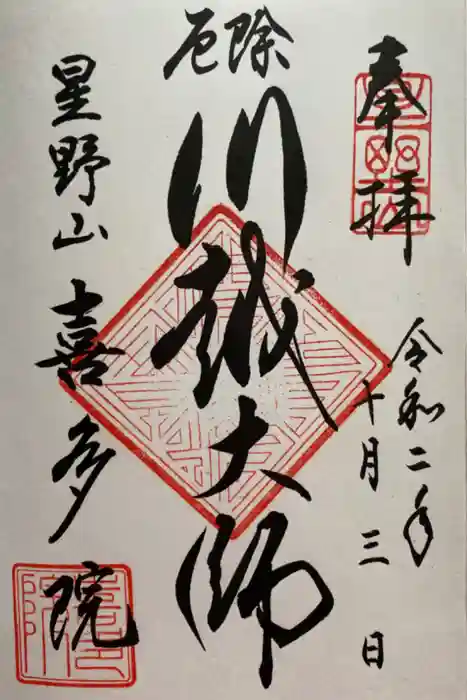 奉拝
令和二年
十月三日
厄除
川越大師
星野山喜多院